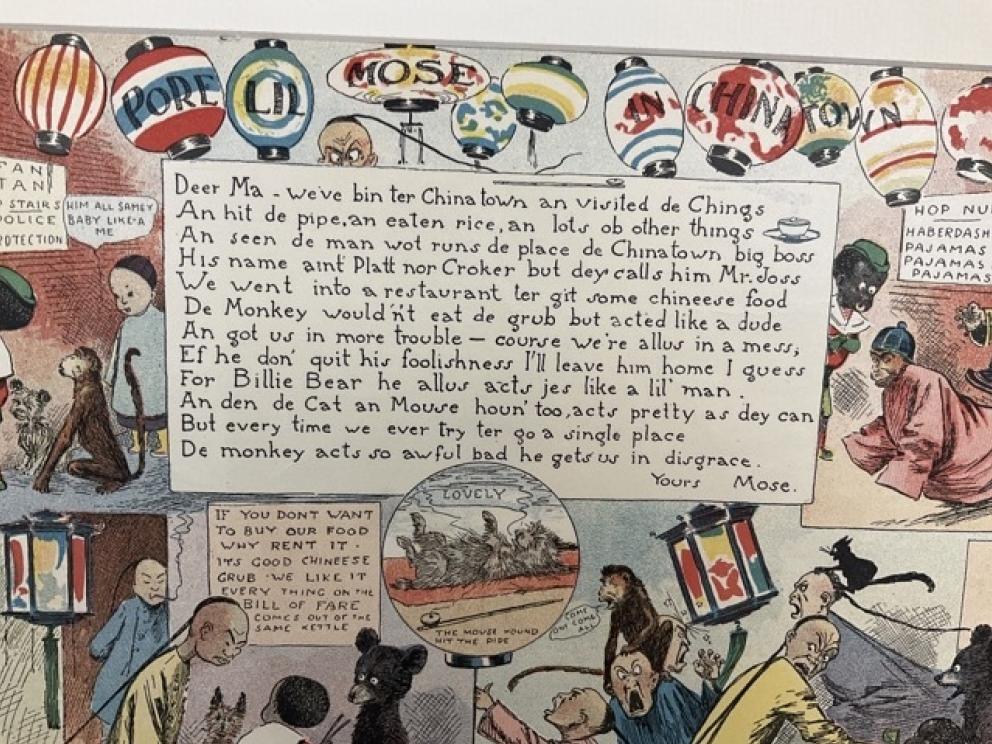 PORE LIL MOSE IN CHINATOWN
FAN
TAN
STAIRS
POLICE
PROTECTION
HIM ALL SAMEY
BABY LIKE-A
ME
Deer Ma - we've bin ter Chinatown an visited de Chings
An hit de pipe, an eaten rice, an lots ob other things
An seen de man wot runs de place de Chinatown big boss
His name aint Platt nor Croker but dey calls him Mr. Joss
We went into a restaurant ter git some chineese food
De Monkey would'n't eat de grub but acted like a dude
An got us in more trouble - course we're allus in a mess,
Ef he don' quit his foolishness I'll leave him home I guess
For Billie Bear he allus acts jes like a lil' man.
An den de Cat an Mouse houn' too, acts pretty as dey can
But every time we ever try ter go a single place
De monkey acts so awful bad he gets us in disgrace.
Yours Mose.
HOP
HABERDASH
PAJAMAS
PAJAMAS
PAJAMAS
IF YOU DONT WANT
TO BUY OUR FOOD
WHY RENT IT.
ITS GOOD CHINEESE
GRUB WE LIKE IT
EVERY THING ON THE
BILL OF FARE
COMES OUT OF THE
SAME KETTLE
LOVELY
THE MOUSE HOUND
HIT THE PIPE
COME
ONE COME
ALL